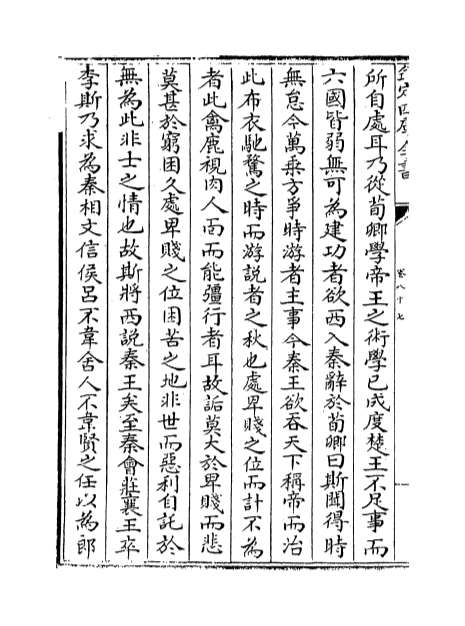 欽定四庫全書
卷八十七
所自處耳乃從荀卿學帝王之術學已成度楚王不足事而
六國皆弱無可為建功者欲西入秦辭於荀卿曰斯聞得時
無怠今萬乗方爭時游者主事今秦王欲吞天下稱帝而治
此布衣馳騖之時而游說者之秋也處卑賤之位而計不為
者此禽鹿視肉人靣而能彊行者耳故詬莫大於卑賤而悲
莫甚於窮困久處卑賤之位困苦之地非世而惡利自託於
無為此非士之情也故斯將西說秦王矣至秦會莊襄王卒
李斯乃求為秦相文信侯呂不韋舍人不韋賢之任以為郎